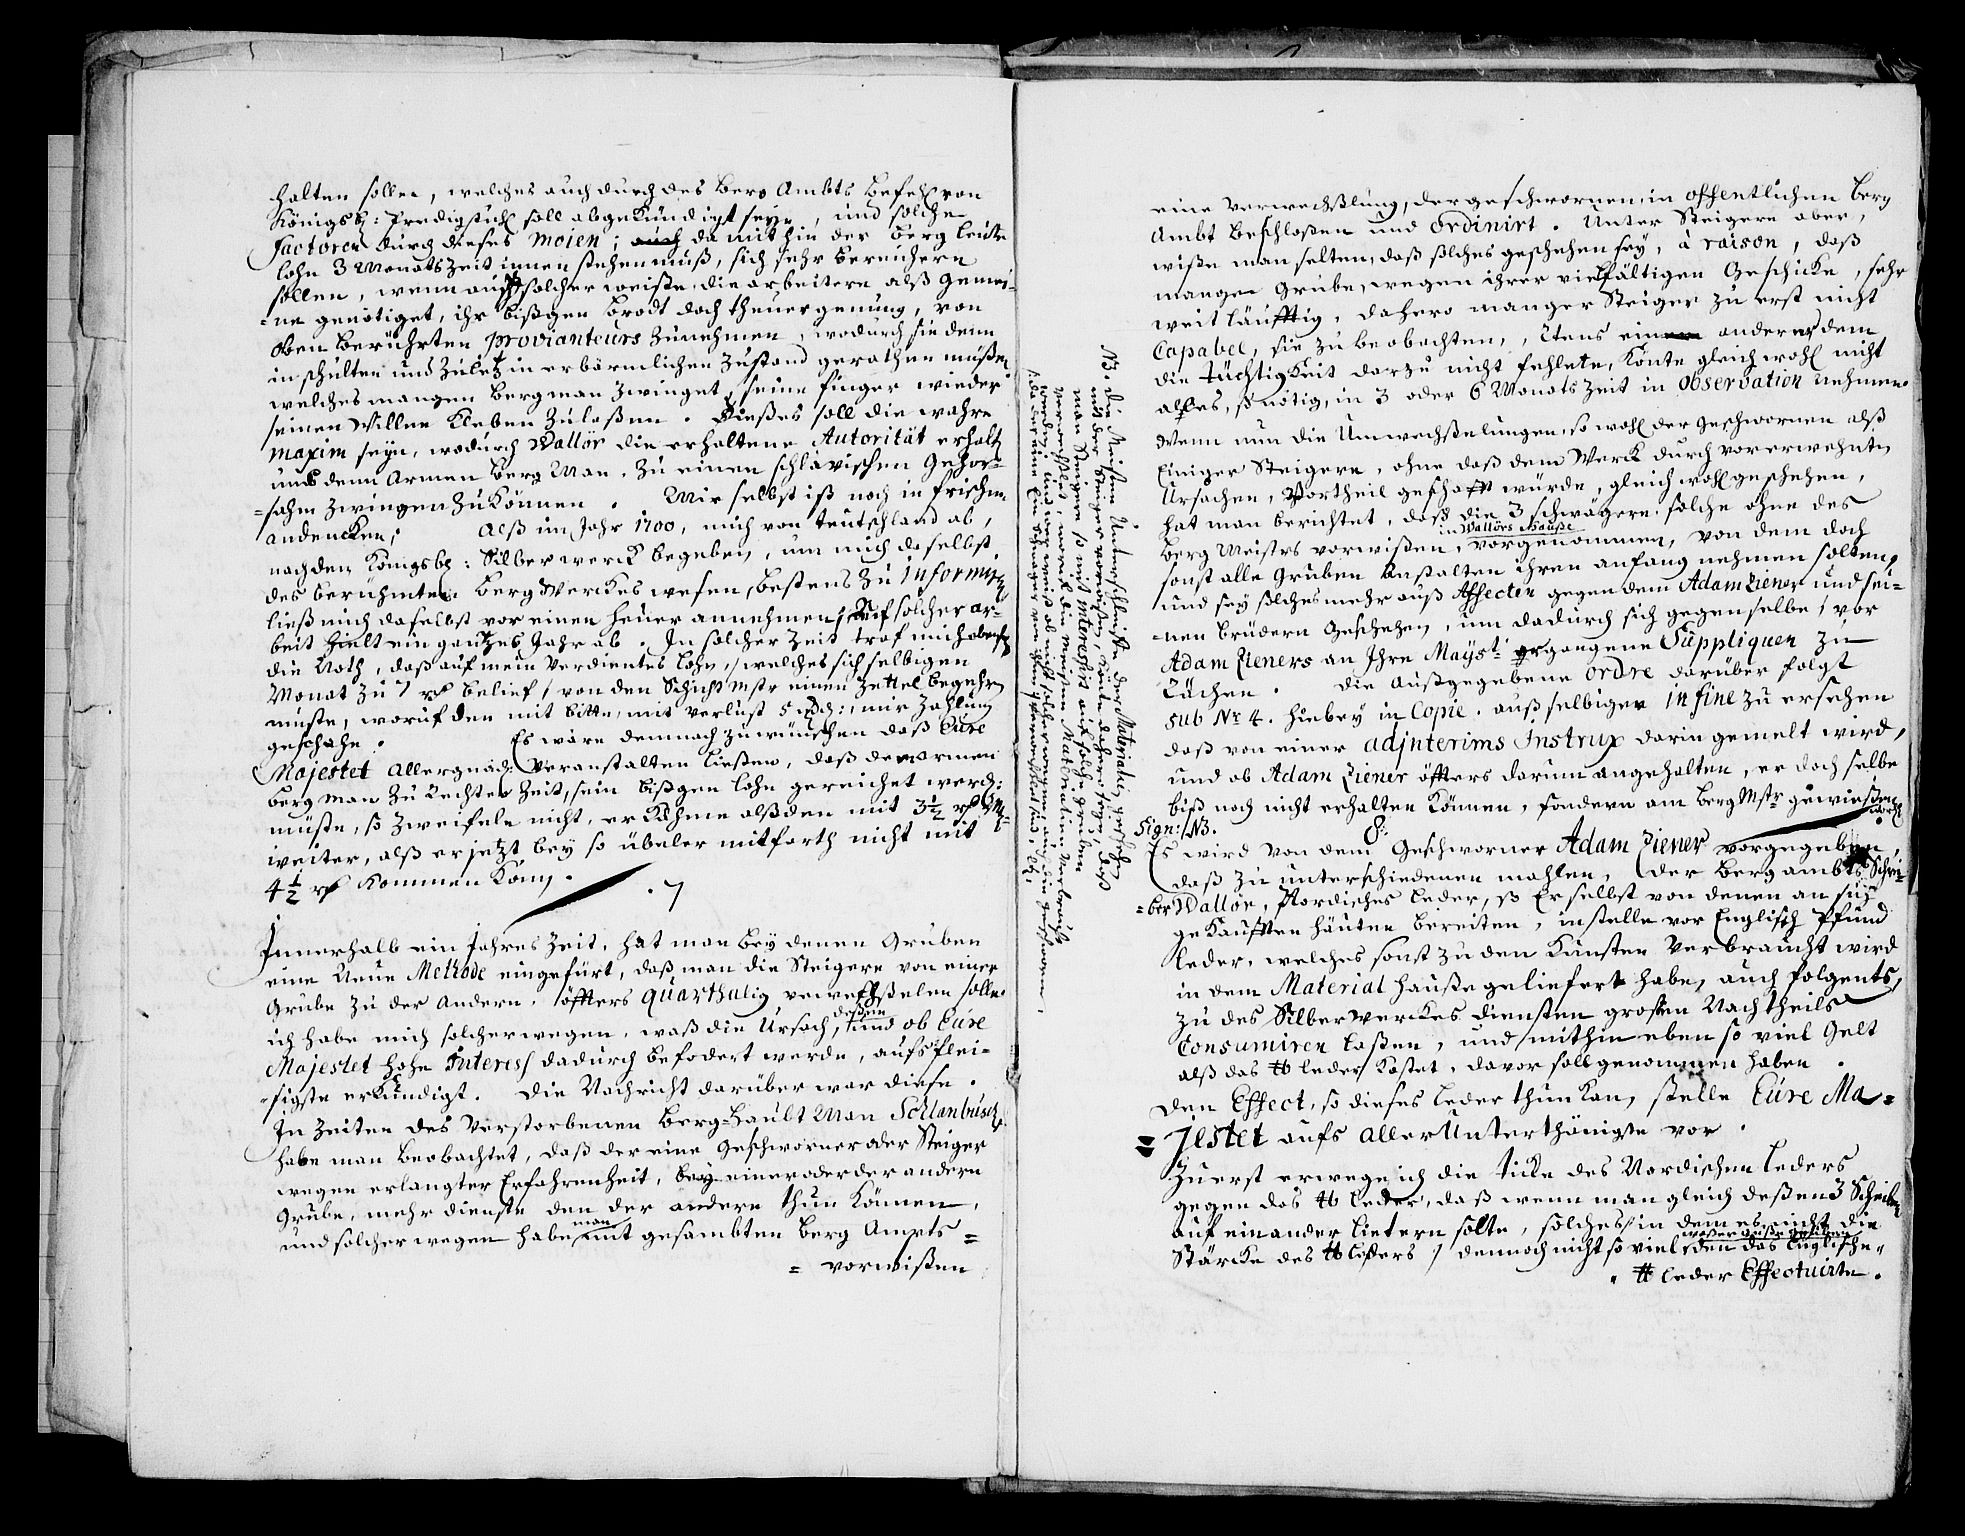 halten sollen, welches auch durch des Berg Ambts Befehl von
Königsb: Predigstuhl soll abgekündigt seyn, und solche
Factoren durch dieses moien; auch da mithin der Berg leute
lohn 3 Monats Zeit innen stehen muß, sich sehr bereichern
sollen, wenn auf solcher weiße die arbeitere alß gemei-
=ne genötiget, ihr bißgen Brodt doch theuer genung, von
oben berührten Provianteurs zunehmen, wodurch sie denn
in schulten und zuletzt in erbärmlichen Zustand gerathen müßen
welches mangen Bergman zwinget, seine finger wieder
seinen Willen kleben zulaßen. Dießes soll die wahre
maxim seyn, wodurch Wallör die erhaltene Autorität erhält
und dem Armen Berg Man, zu einen schlävischen Gehor-
=sahm zwingen zukönnen. Mir selbst ist noch in frischen
andencken; Alß im Jahr 1700, mich von teutschland ab,
nach den Königsb: Silberwerck begeben, um mich daselbst
des berühmten BergWerckes wesen, bestens zu informiren
ließ mich daselbst vor einen heuer annehmen / Auf solcher ar-
beit hielt ein gantzes Jahr ab. In solcher Zeit traf mich
die Noth, daß auf mein verdientes lohn, / welches sich selbigen
Monat zu 7 rß belief / von den Schicht Mstr einen Zettel begehren
muste, worauf den mit bitte, mit verlust 5 mir Zahlung
geschahe. Es wäre demnach zu wünschen daß Eüre
Majestet allergnäd: Veranstalten ließen, daß dem armen
Berg man zu rechter Zeit, sein bißgen lohn gereichet werd:
müste, so zweifele nicht, er kähme alßden mit 3½ rß
weiter, alß er jetzt bey so übeler mitforth nicht mit
4½ rß kommen kan.
. 7
Innerhalb ein Jahres Zeit, hat man bey denen Gruben
eine Neue Methode eingefürt, daß man die Steigere von einer
Grube zu der andern, öffters quarthalig verwechßelen solle.
ich habe mich solcher wegen, waß die Ursach deßen, und ob Eüre
Majestet hohe Interess dadurch befodert werde, aufs flei-
=sigste erkundigt. Die Nachricht darüber war diese.
In Zeiten des Verstorbenen Berg=Haubt Man Schlanbusch,
habe man beobachtet, daß der eine Geschworner oder Steiger
wegen erlangter Erfahrenheit, bey einer oder der andern
Grube, mehr dienste den der andere thun können,
und solcher wegen habe man mit gesambten Berg Ampts =
= vorwißen
eine Verwechßlung, der geschwornen in offentlichen Berg
Ambt beschloßen und ordinirt. Unter Steigere aber,
wiße man selten, daß solches geschehen sey, à raison, daß
mange Grube, wegen ihrer vielfältigen Geschicke, sehr
weitläufftig, dahero manger Steiger zu erst nicht
Capabel, sie zu beobachten, 2tens einem anderer dem
die tüchtigkeit darzu nicht fehlete, könte gleichwohl nicht
alles, so nötig, in 3 oder 6 Monats Zeit in observation nehmen.
Wenn nun die Umwechßelungen, so wohl der Geschwornen alß
Einiger Steigere, ohne daß dem Werck durch vor erwehnte
Ursachen, Vortheil geschafft würde, gleichwohl geschehen,
hat man berichtet, daß die 3 schwägere solche ohne des
Berg Meisters vorwißen, in Wallörs Hauße vorgenommen, von dem doch
sonst alle Gruben anstalten ihren anfang nehmen solten,
und sey solches mehr auß Affecten gegen dem Adam Ziener und sei-
=nen brüdern geschehen, um dadurch sich gegen selbe / vor
Adam Zieners an Ihre Mayst: ergangene Suppliquen zu
Rächen. Die außgegebene ordre darüber folgt
sub Nr 4. hiebey in Copie. auß selbigen in fine zu ersehen
daß von einer adjnterims Instrux darin gemelt wird,
und ob Adam Ziener öffters darum angehalten, er doch selbe
biß noch nicht erhalten können, sondern am Berg Mstr gewiesen
Sign: NB. 8. 
Es wird von dem Geschworner Adam Ziener vorgegeben,
daß zu unterschiedenen mahlen, der Bergambts Schrei-
=ber Wallör, Nordisches leder, so Er selbst von denen an sich
gekaufften häuten bereiten, in stelle vor Englisch Pfund
leder, welches sonst zu den Künsten Verbraucht wird
in dem Material hauße geliefert habe, auch folgents,
zu des Silberwerckes diensten großen Nachtheils
Consumiren laßen, und mithin eben so viel gelt
alß das ℔ leder kostet, davor soll genommen haben.
Den Effect, so dieses leder thun kan, stelle Eüre Ma=
= jestet aufs aller Unterthänigste vor.
Zuerst erwege ich die ticke des Nordischen leders
gegen das ℔ leder, daß wenn man gleich deßen 3 Scheiben
auf einander liefern solte, solches / in dem es nicht die
Stärcke des ℔ leders / dennoch nicht so viel den das Englische
℔ leder Effectuirte.
NB. die Meisten Unterschleiffe der Materialien geschehen
mit der Steiger vorwißen, könte dahero seyn, daß
man Steigere so mit interessirt auf solche gruben
verwechßlet, worauf die meisten Materialien verbraucht
werden,